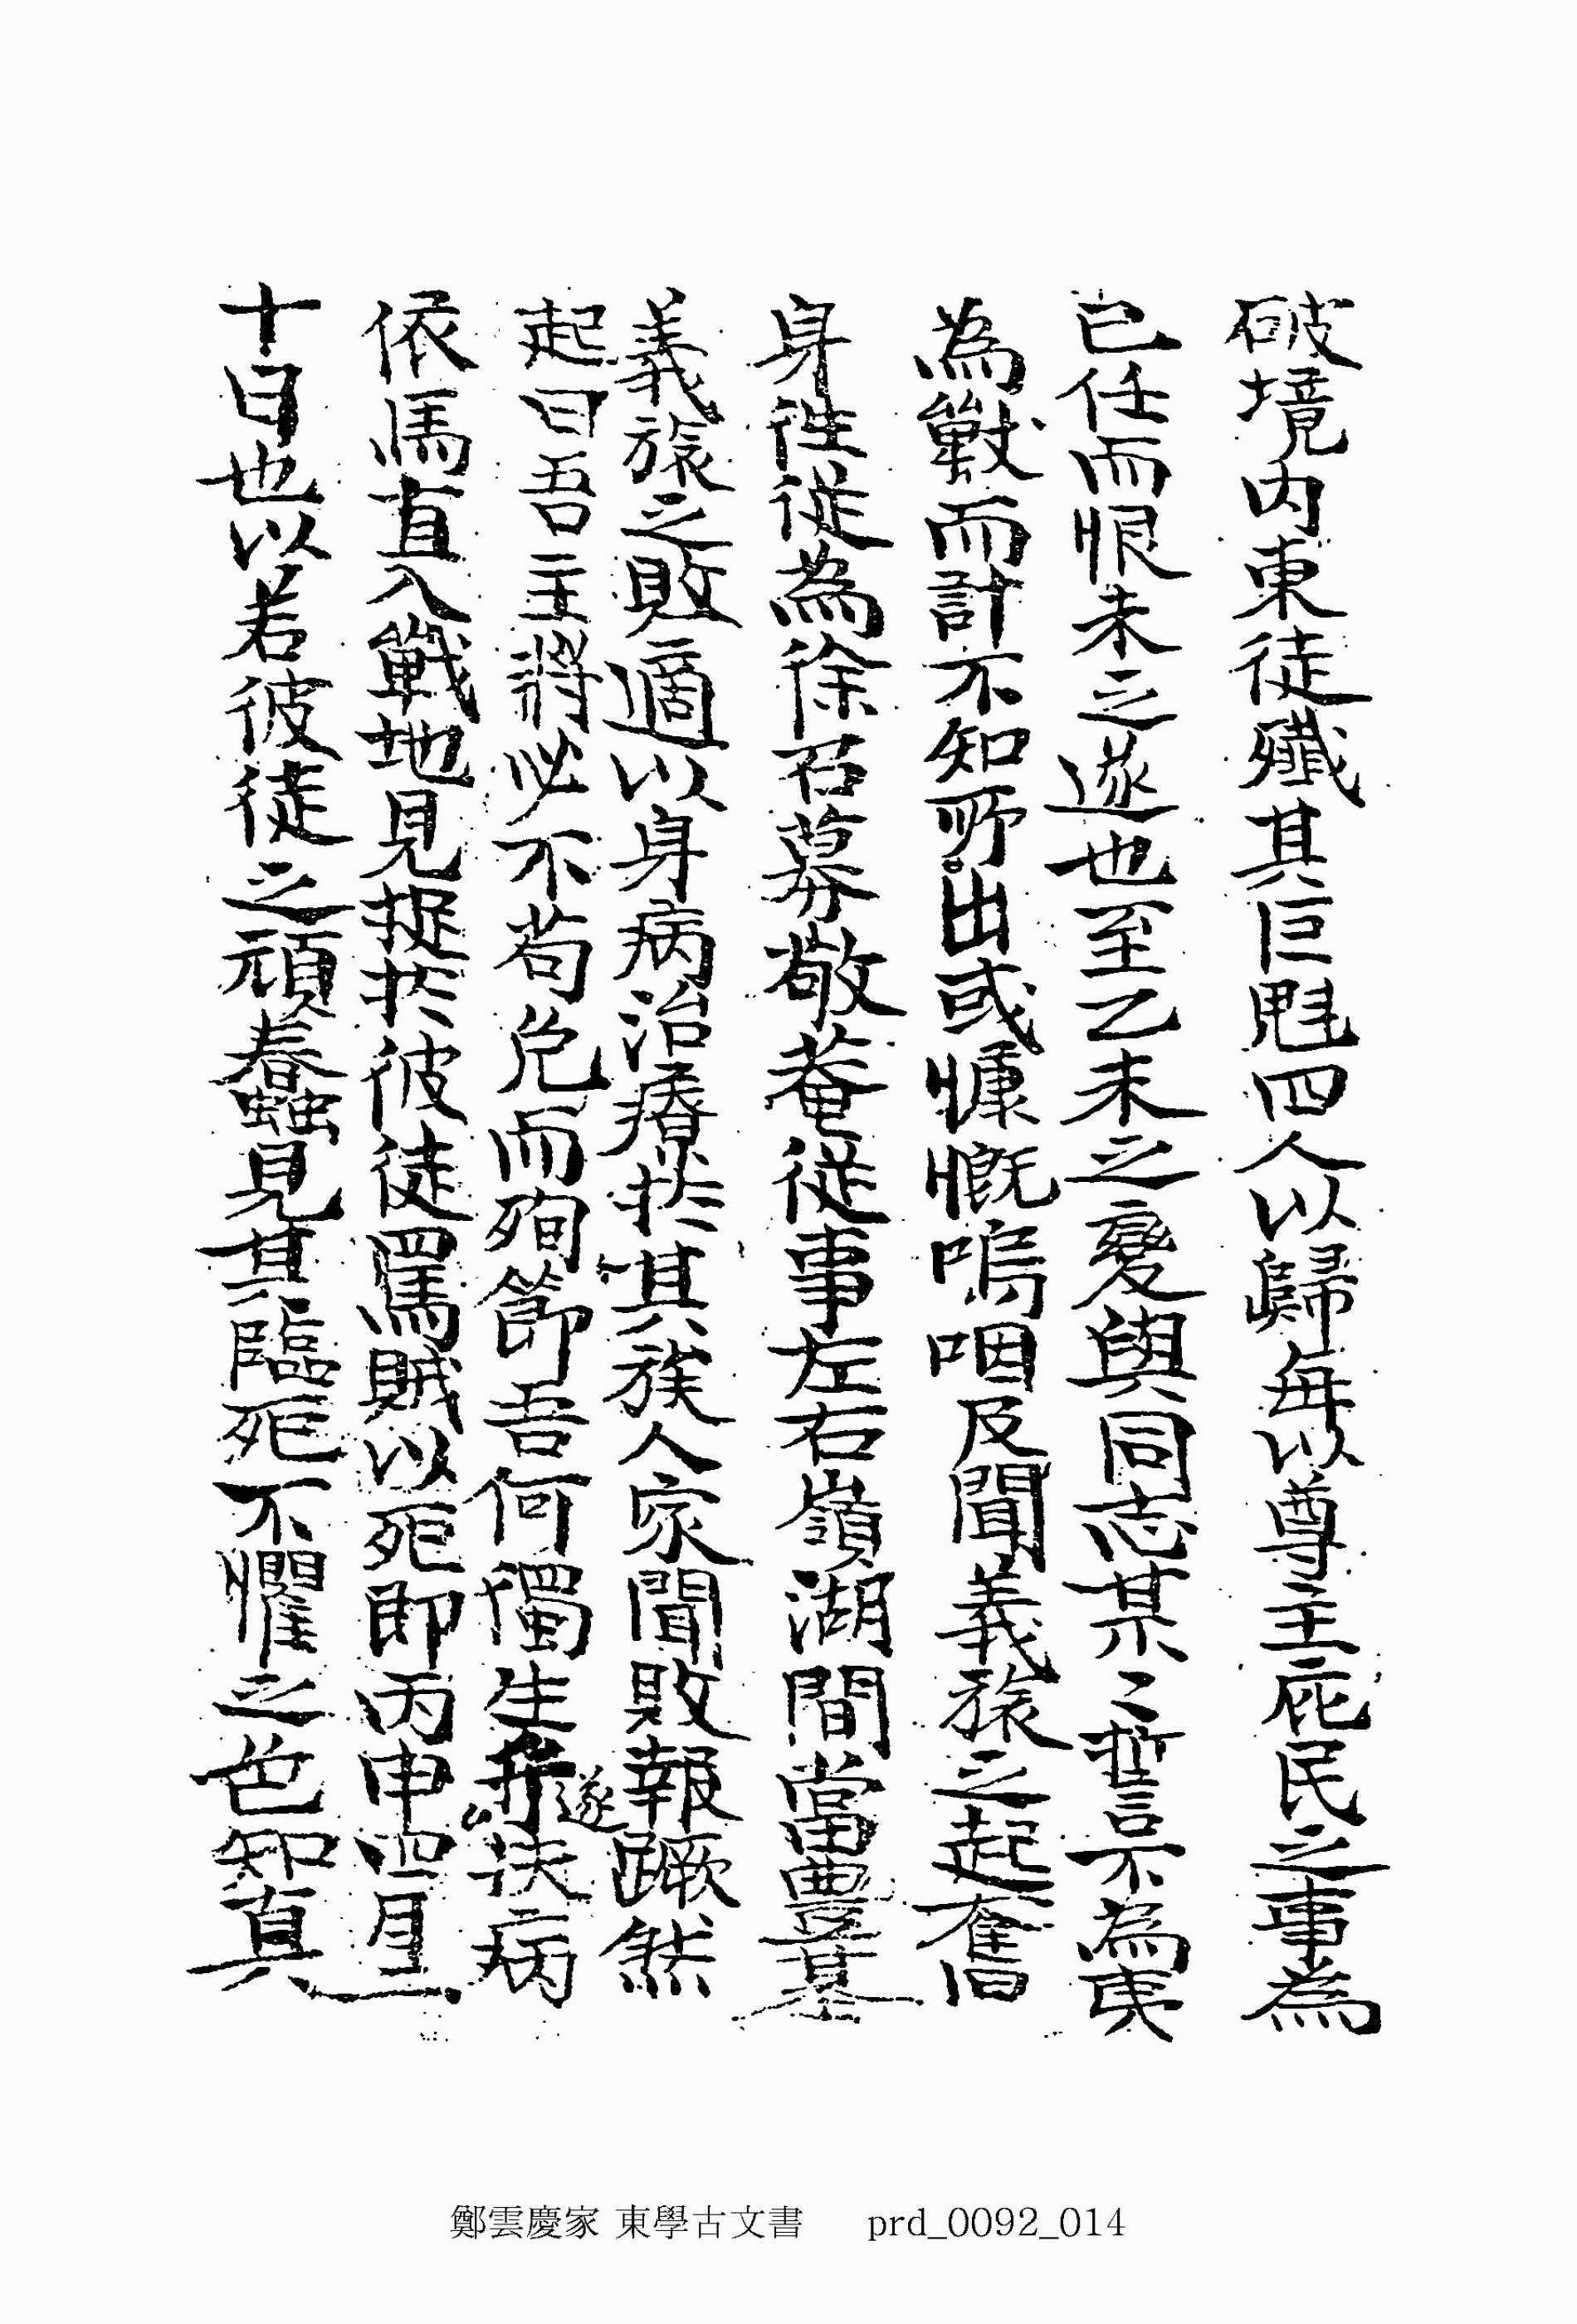 破境內東徒殲其巨魁四人以歸每以尊主庇民之事爲
已任而恨未之遂也至乙未之變與同志某〻誓不爲夷
爲獸而計不知所出或慷慨嗚咽及聞義旅之起奮
身徃從爲徐召募敬菴從事左右嶺湖間當豊基
義旅之敗適以身病治療於其族人家聞敗報蹶然
起曰吾主將必不苟免而殉節吾何獨生遂扶病
依馬直入戰地見捉於彼徒罵賊以死即丙申四月二
十日也以若彼徒之頑蠢見其臨死不懼之色知眞
鄭雲慶家 東學古文書 prd_0092_014